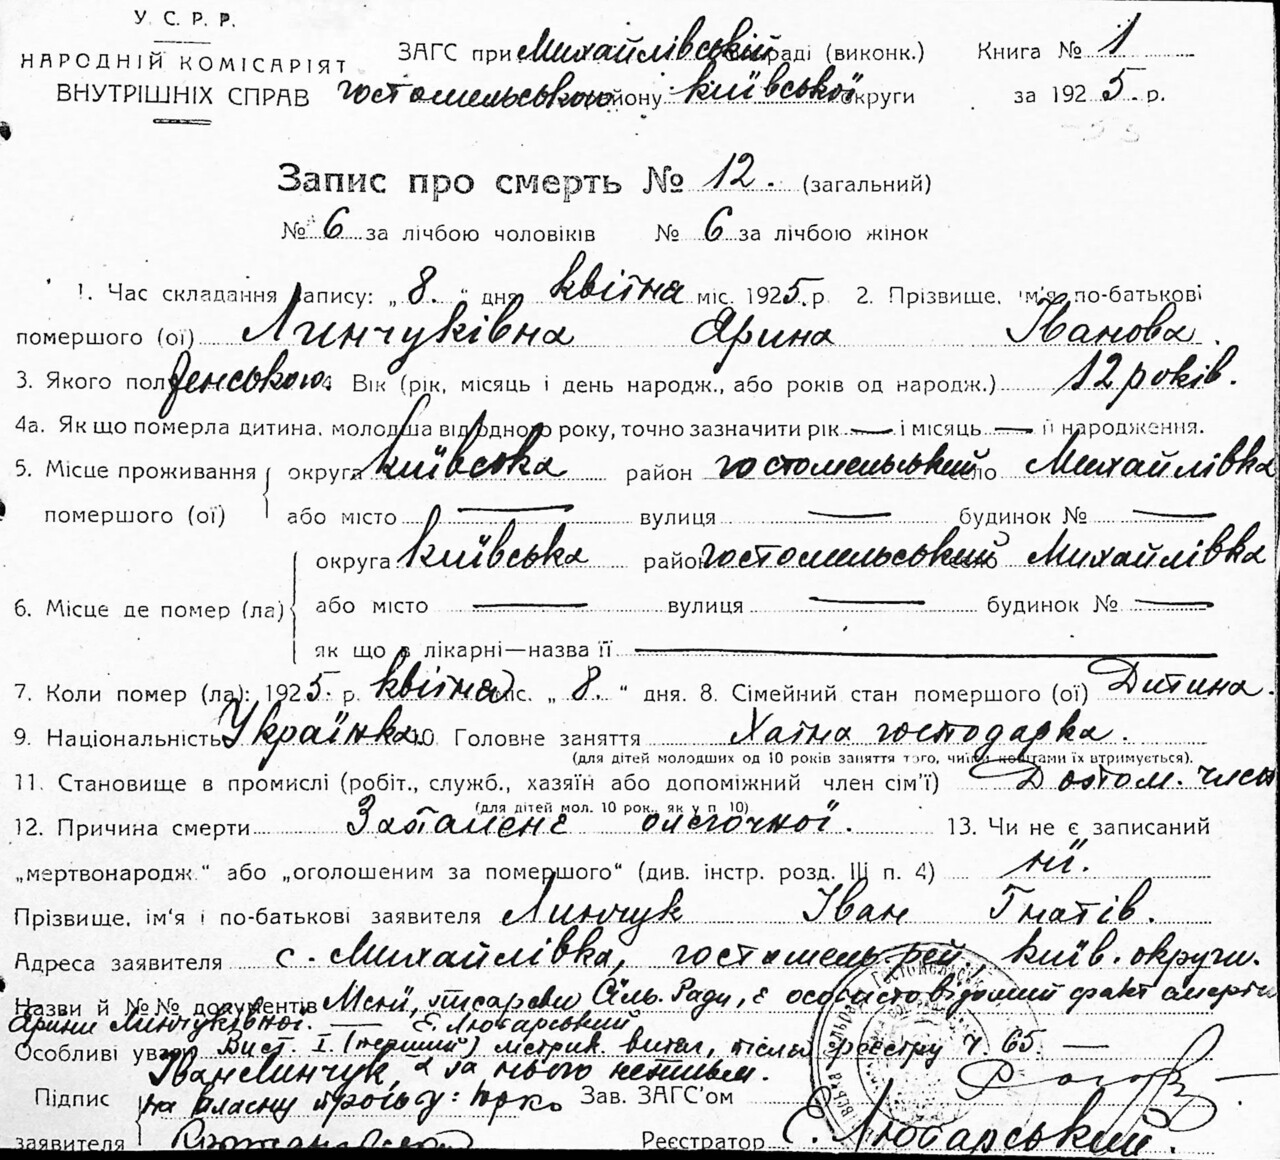 У. С. Р. Р.
НАРОДНІЙ КОМІСАРІЯТ
ВНУТРІШНІХ СПРАВ
ЗАГС при Михайлівській раді (виконк.) Книга № 1
гостомельського району київської округи за 1925. р.
Запис про смерть № 12. (загальний)
№ 6 за лічбою чоловіків № 6 за лічбою жінок
1. Час складання запису: „ 8. “ дня квітна міс. 1925. р. 2. Прізвище, ім'я по-батькові
помершого (ої) Линчуківна Ярина Іванова.
3. Якого пол Женською. 4. Вік (рік, місяць і день народж., або років од народж.) 12 років.
4а. Як що померла дитина, молодша від одного року, точно зазначити рік — і місяць — її народження.
5. Місце проживання помершого (ої)
округа київська район гостомельський село Михайлівка
або місто — вулиця — будинок № —
6. Місце де помер (ла)
округа київська район гостомельський село Михайлівка
або місто — вулиця — будинок № —
як що в лікарні—назва її —
7. Коли помер (ла): 1925. р. квітна міс. „ 8. “ дня. 8. Сімейний стан помершого (ої) Дитина.
9. Національність Українка 10 Головне заняття Хатна господарка.
(для дітей молодших од 10 років заняття того, чиїми коштами їх втримується).
11. Становище в промислі (робіт., служб., хазяїн або допоміжний член сім'ї) Допом. член
(для дітей мол. 10 рок., як у п. 10)
12. Причина смерти Запаленє олегочної. 13. Чи не є записаний
„мертвонародж.“ або „оголошеним за помершого“ (див. інстр. розд. III п. 4) нї.
Прізвище, ім'я і по-батькові заявителя Линчук Іван Гнатів.
Адреса заявителя с. Михайлівка, гостомель. рей. київ. округи.
Назви й №№ документів Мені, писареві Сіль. Ради, є особисто відомий факт смерти
Ярини Линчуківної. — Є. Любарський
Особливі уваги Вист. I. (перший) після реєстру ч. 65. —
Підпис заявителя
Іван Линчук, а за нього неписьм.
на власну прозьбу: Юрко
Зав. ЗАГС'ом
Реєстратор Є. Любарський.